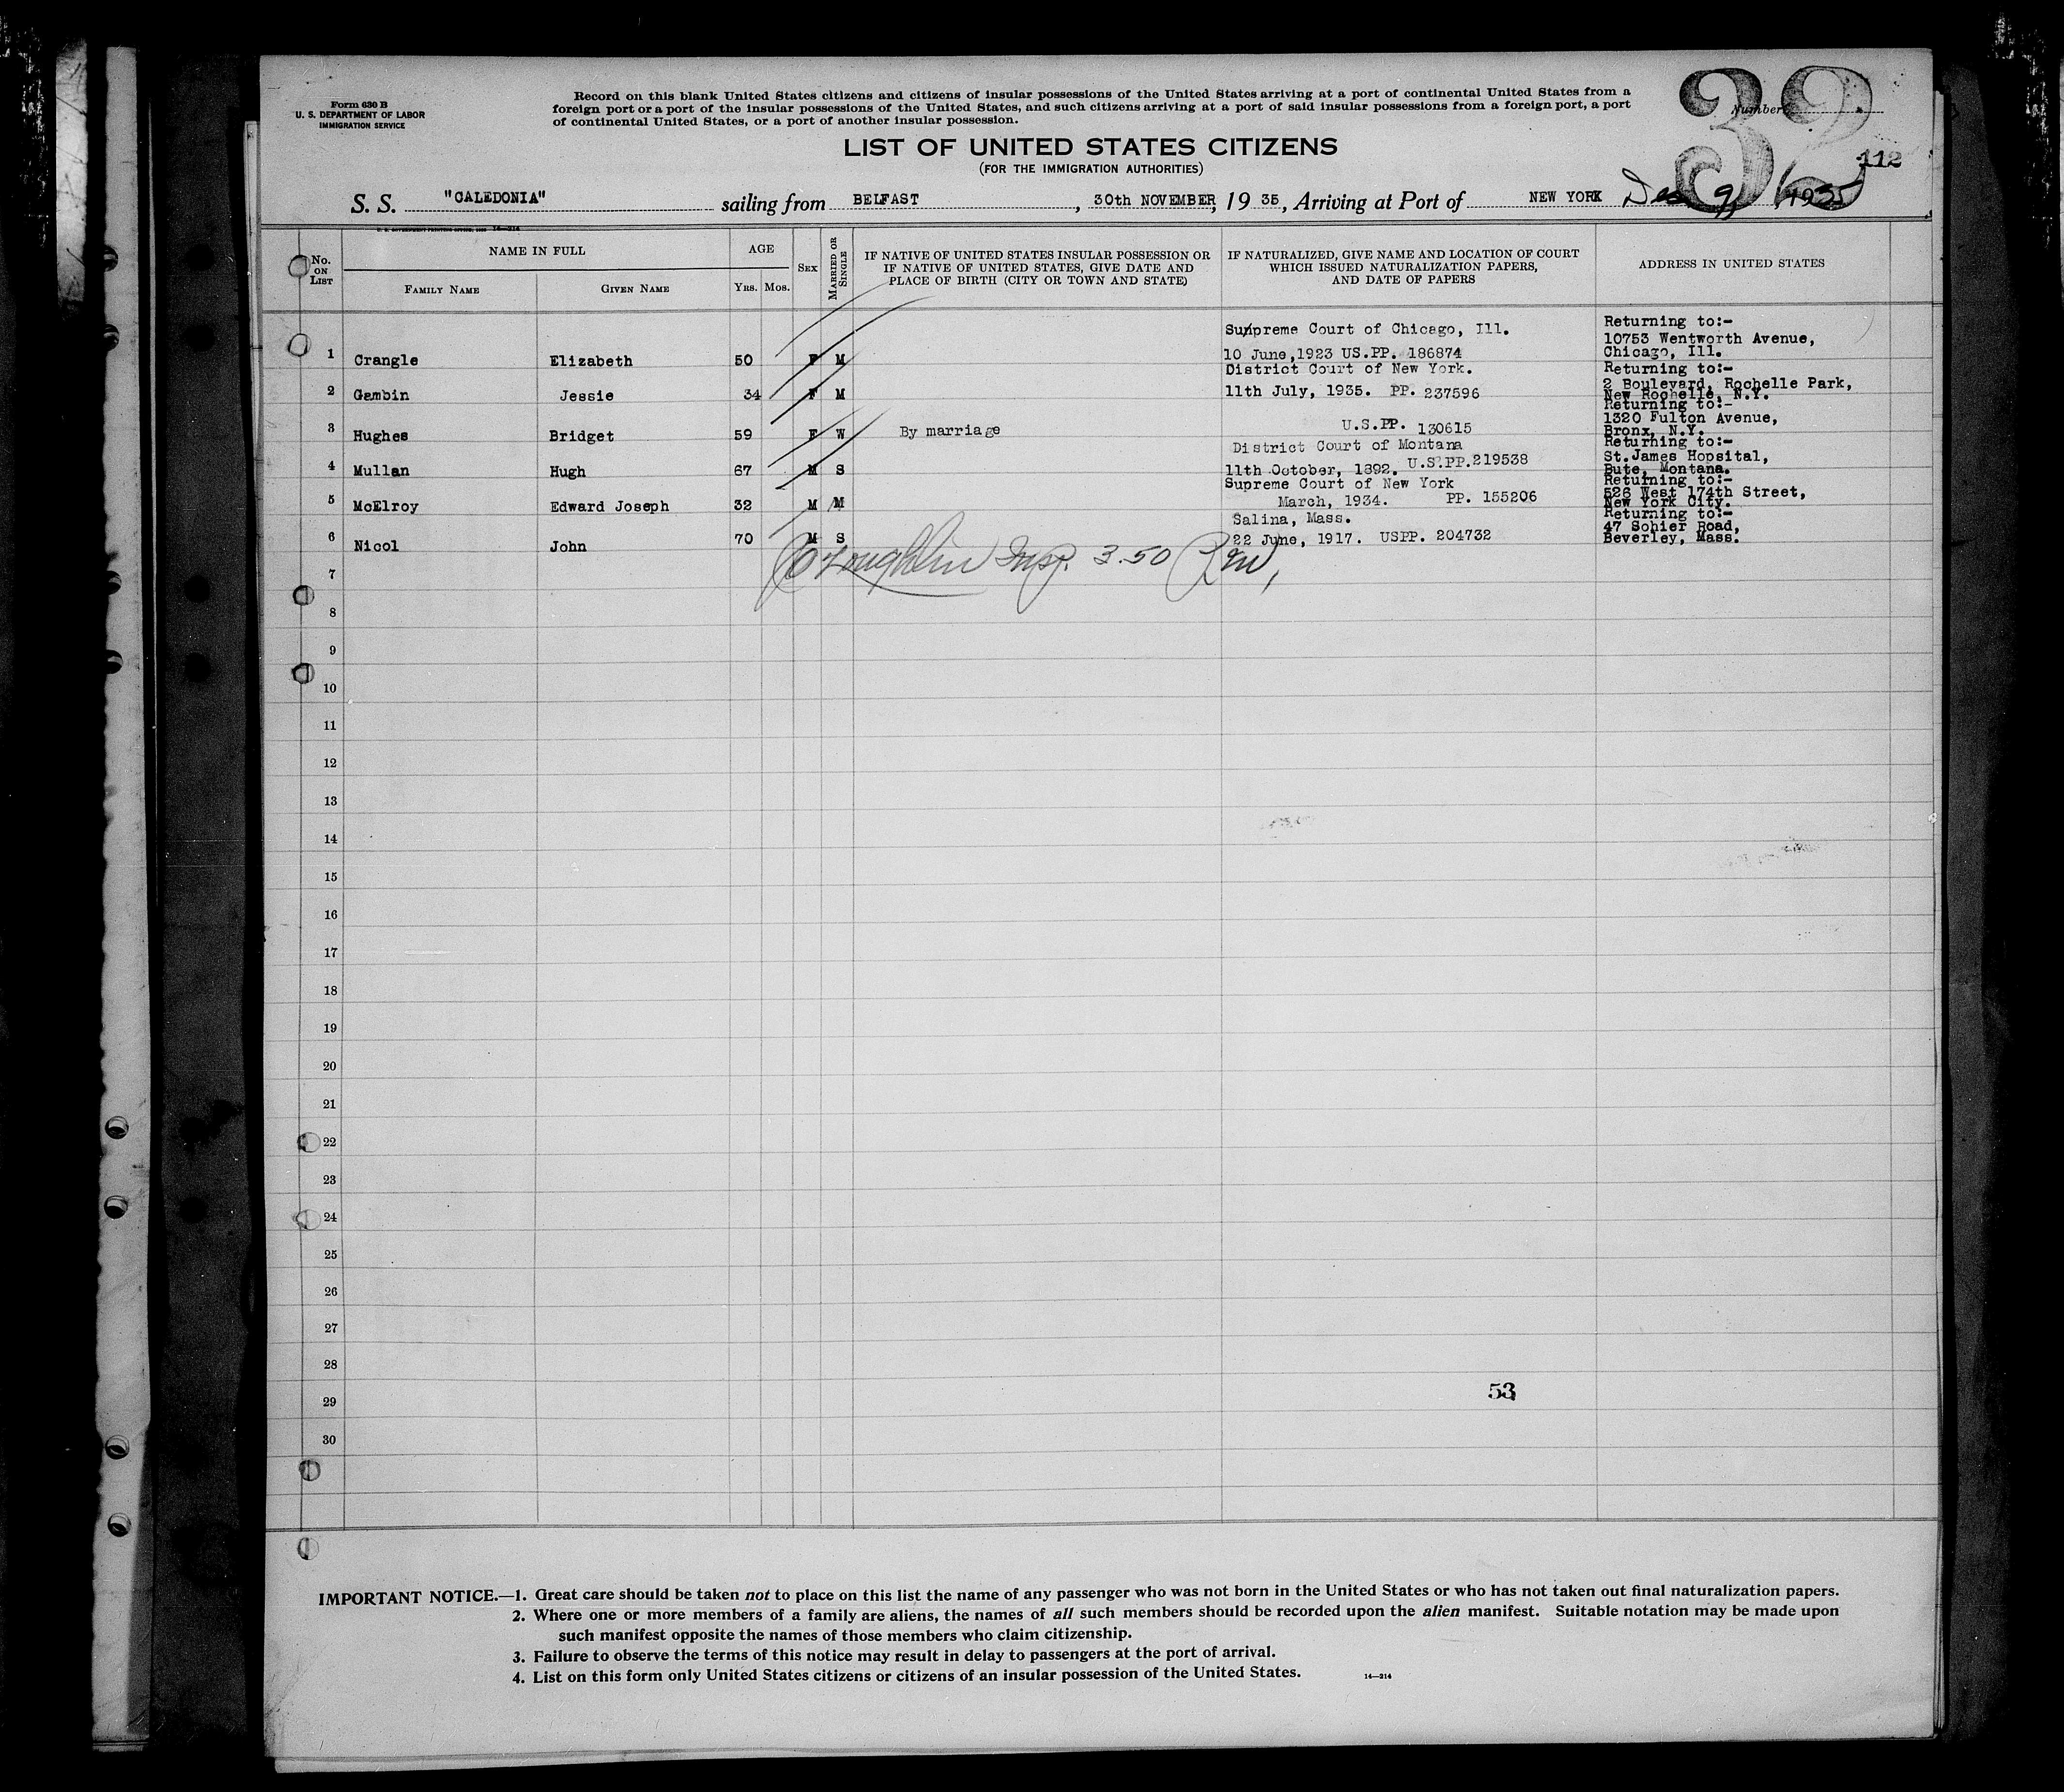 Form 630 B
U. S. DEPARTMENT OF LABOR
IMMIGRATION SERVICE
Record on this blank United States citizens and citizens of insular possessions of the United States arriving at a port of continental United States from a
foreign port or a port of the insular possessions of the United States, and such citizens arriving at a port of said insular possessions from a foreign port, a port
of continental United States, or a port of another insular possession.
Number
32
112
LIST OF UNITED STATES CITIZENS
(FOR THE IMMIGRATION AUTHORITIES)
S. S. "CALEDONIA" sailing from BELFAST, 30th NOVEMBER, 19 35, Arriving at Port of NEW YORK Dec 9, 1935
No. ON LIST
NAME IN FULL
FAMILY NAME
GIVEN NAME
AGE
YRS. MOS.
SEX
MARRIED OR SINGLE
IF NATIVE OF UNITED STATES INSULAR POSSESSION OR
IF NATIVE OF UNITED STATES, GIVE DATE AND
PLACE OF BIRTH (CITY OR TOWN AND STATE)
IF NATURALIZED, GIVE NAME AND LOCATION OF COURT
WHICH ISSUED NATURALIZATION PAPERS,
AND DATE OF PAPERS
ADDRESS IN UNITED STATES
1 Crangle Elizabeth 50 F M
Supreme Court of Chicago, Ill.
10 June,1923 US.PP. 186874
Returning to:-
10753 Wentworth Avenue,
Chicago, Ill.
2 Gambin Jessie 34 F M
District Court of New York.
11th July, 1935. PP. 237596
Returning to:-
2 Boulevard, Rochelle Park,
New Rochelle, N.Y.
3 Hughes Bridget 59 F W By marriage
U.S.PP. 130615
Returning to:-
1320 Fulton Avenue,
Bronx, N.Y.
4 Mullan Hugh 67 M S
District Court of Montana
11th October, 1892. U.S.PP.219538
Returning to:-
St.James Hopsital,
Bute, Montana.
5 McElroy Edward Joseph 32 M M
Supreme Court of New York
March, 1934. PP. 155206
Returning to:-
526 West 174th Street,
New York City.
6 Nicol John 70 M S
Salina, Mass.
22 June, 1917. USPP. 204732
Returning to:-
47 Sohier Road,
Beverley, Mass.
O'Loughlin Insp. 3.50 Pm,
7
8
9
10
11
12
13
14
15
16
17
18
19
20
21
22
23
24
25
26
27
28
29
30
53
IMPORTANT NOTICE.—1. Great care should be taken not to place on this list the name of any passenger who was not born in the United States or who has not taken out final naturalization papers.
2. Where one or more members of a family are aliens, the names of all such members should be recorded upon the alien manifest. Suitable notation may be made upon
such manifest opposite the names of those members who claim citizenship.
3. Failure to observe the terms of this notice may result in delay to passengers at the port of arrival.
4. List on this form only United States citizens or citizens of an insular possession of the United States.
14—214